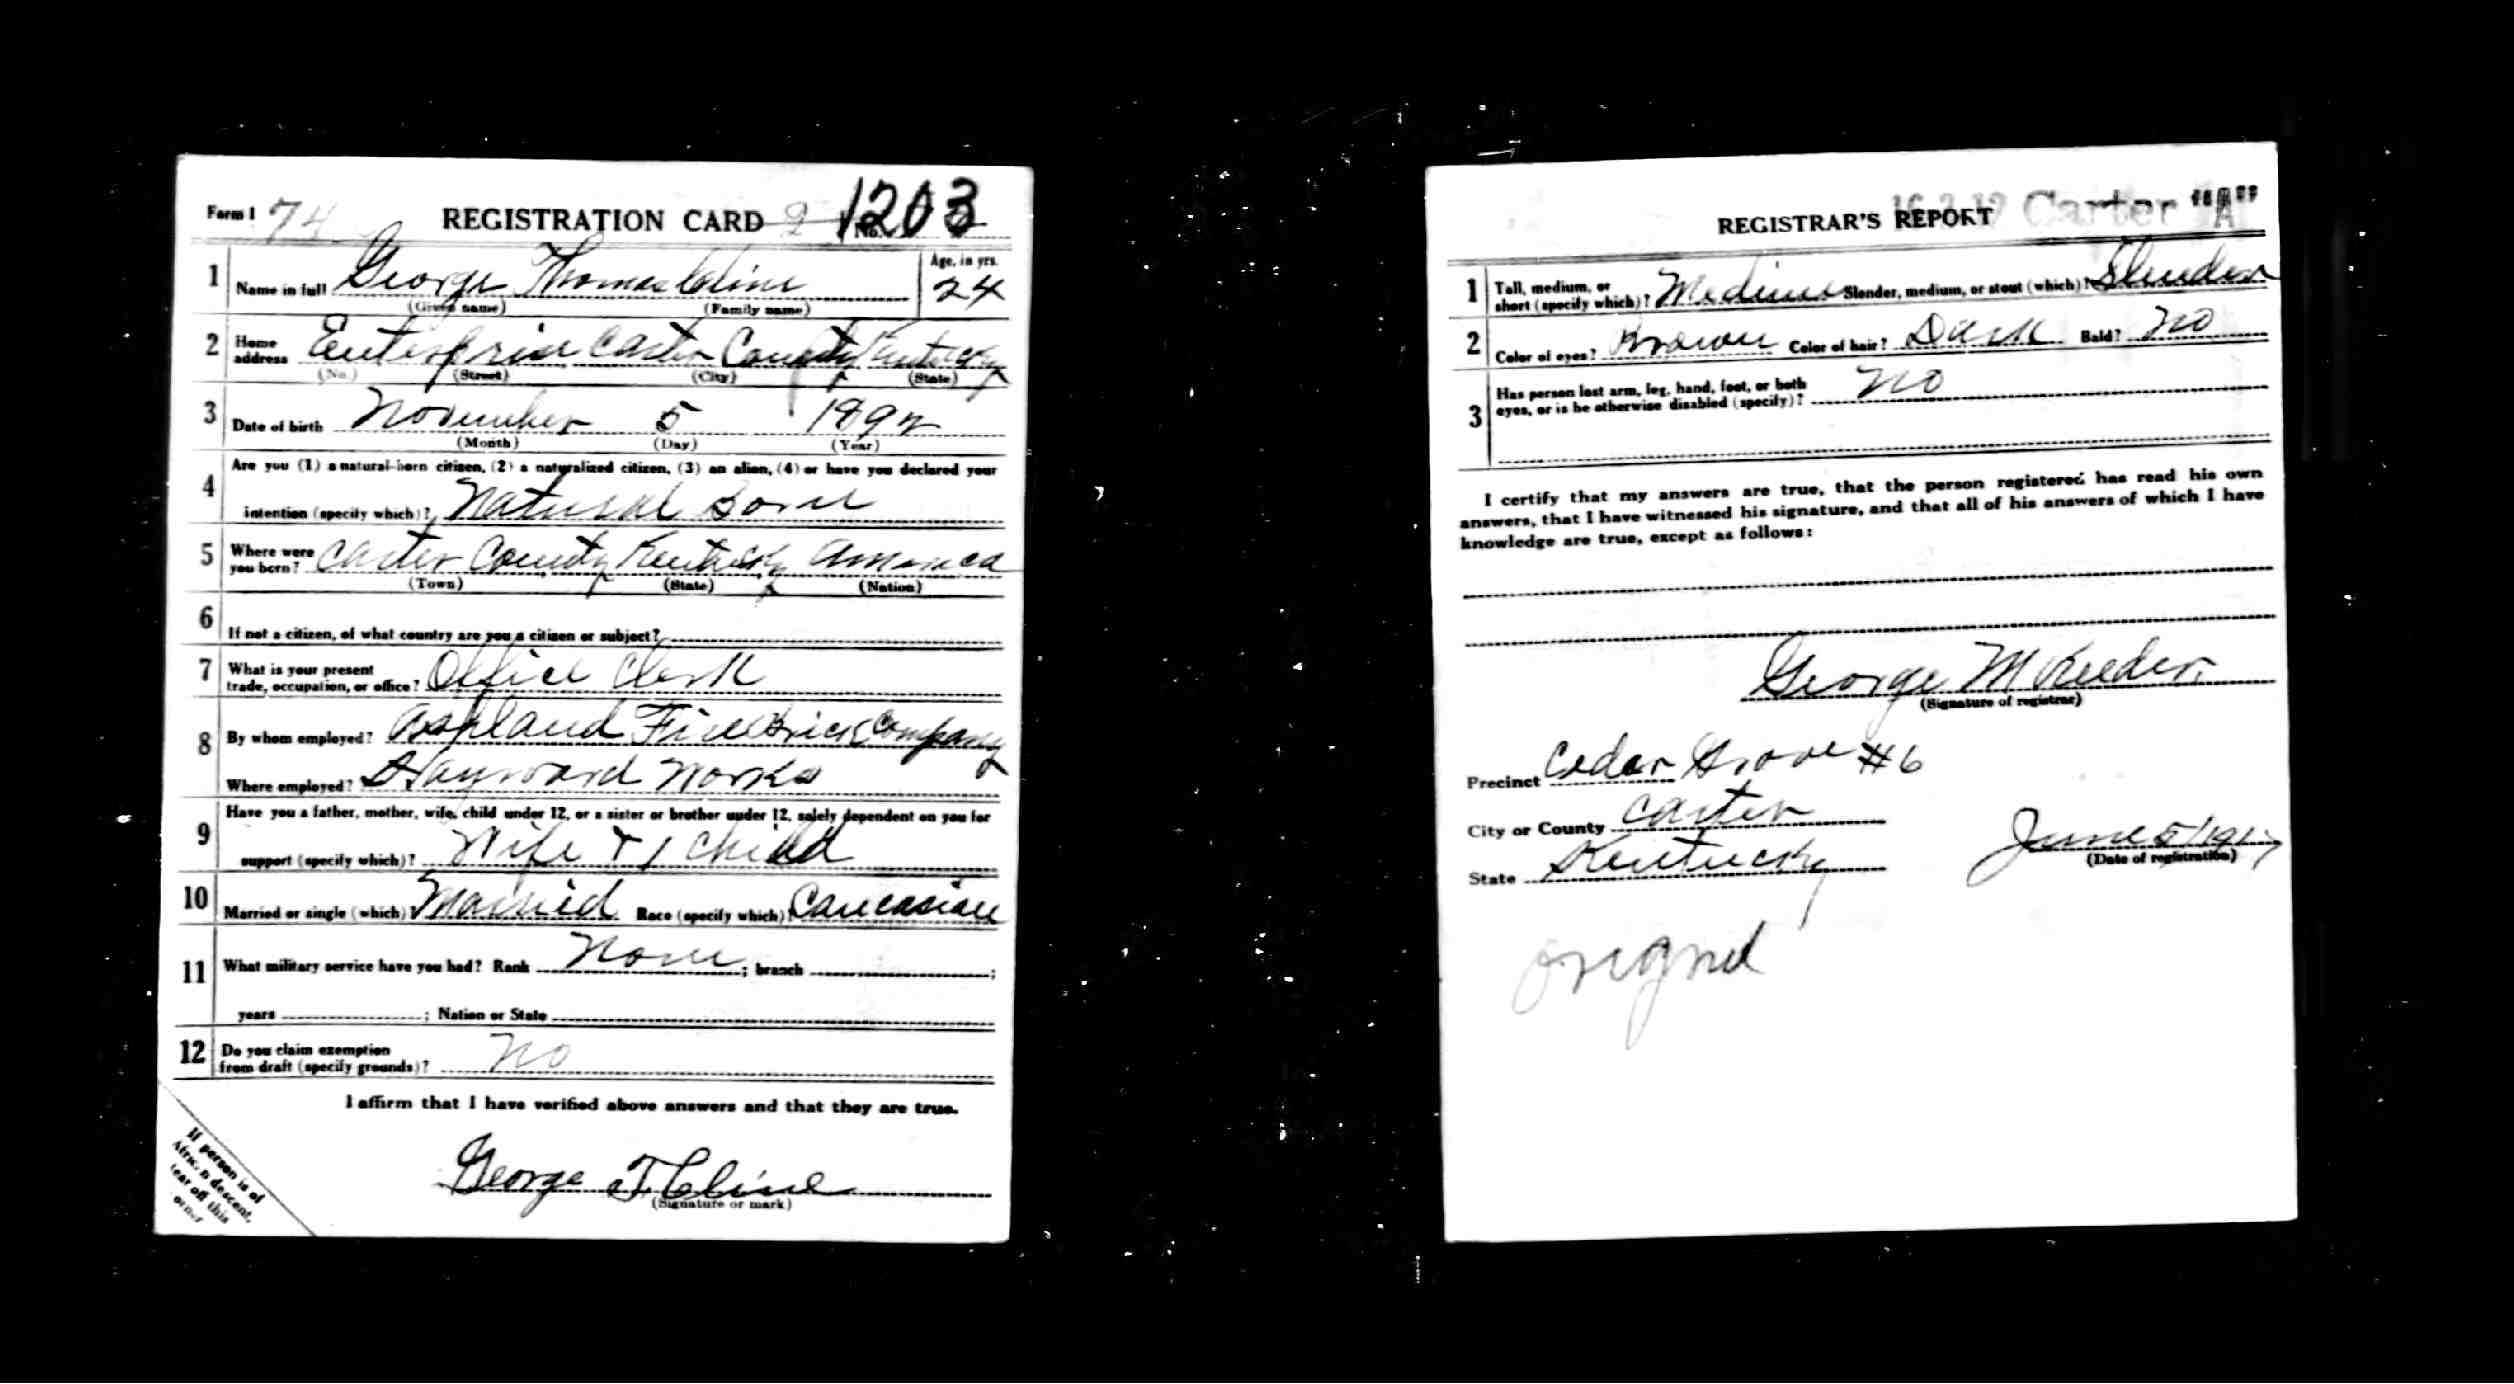 Form 1 74 REGISTRATION CARD 2 No. 1203
1 Name in full George Thomas Cline Age, in yrs. 24
(Given name) (Family name)
2 Home address Enterprise Carter County Kentucky
(No.) (Street) (City) (State)
3 Date of birth November 5 1892
(Month) (Day) (Year)
4 Are you (1) a natural-born citizen, (2) a naturalized citizen, (3) an alien, (4) or have you declared your
intention (specify which)? Natural Born
5 Where were you born? Carter County Kentucky America
(Town) (State) (Nation)
6 If not a citizen, of what country are you a citizen or subject?
7 What is your present
trade, occupation, or office? Office Clerk
8 By whom employed? Ashland Fire Brick Company
Where employed? Hayward Works
9 Have you a father, mother, wife, child under 12, or a sister or brother under 12, solely dependent on you for
support (specify which)? Wife + 1 Child
10 Married or single (which)? Married Race (specify which)? Caucasian
11 What military service have you had? Rank None ; branch ;
years ; Nation or State
12 Do you claim exemption
from draft (specify grounds)? No
I affirm that I have verified above answers and that they are true.
George T. Cline
(Signature or mark)
If person is of
African descent,
tear off this
corner
REGISTRAR'S REPORT Carter "A"
1 Tall, medium, or
short (specify which)? Medium Slender, medium, or stout (which)? Slender
2 Color of eyes? Brown Color of hair? Dark Bald? No
3 Has person lost arm, leg, hand, foot, or both
eyes, or is he otherwise disabled (specify)? No
I certify that my answers are true, that the person registered has read his own
answers, that I have witnessed his signature, and that all of his answers of which I have
knowledge are true, except as follows:
George M Keeder
(Signature of registrar)
Precinct Cedar Grove #6
City or County Carter
State Kentucky
June 5/1917
(Date of registration)